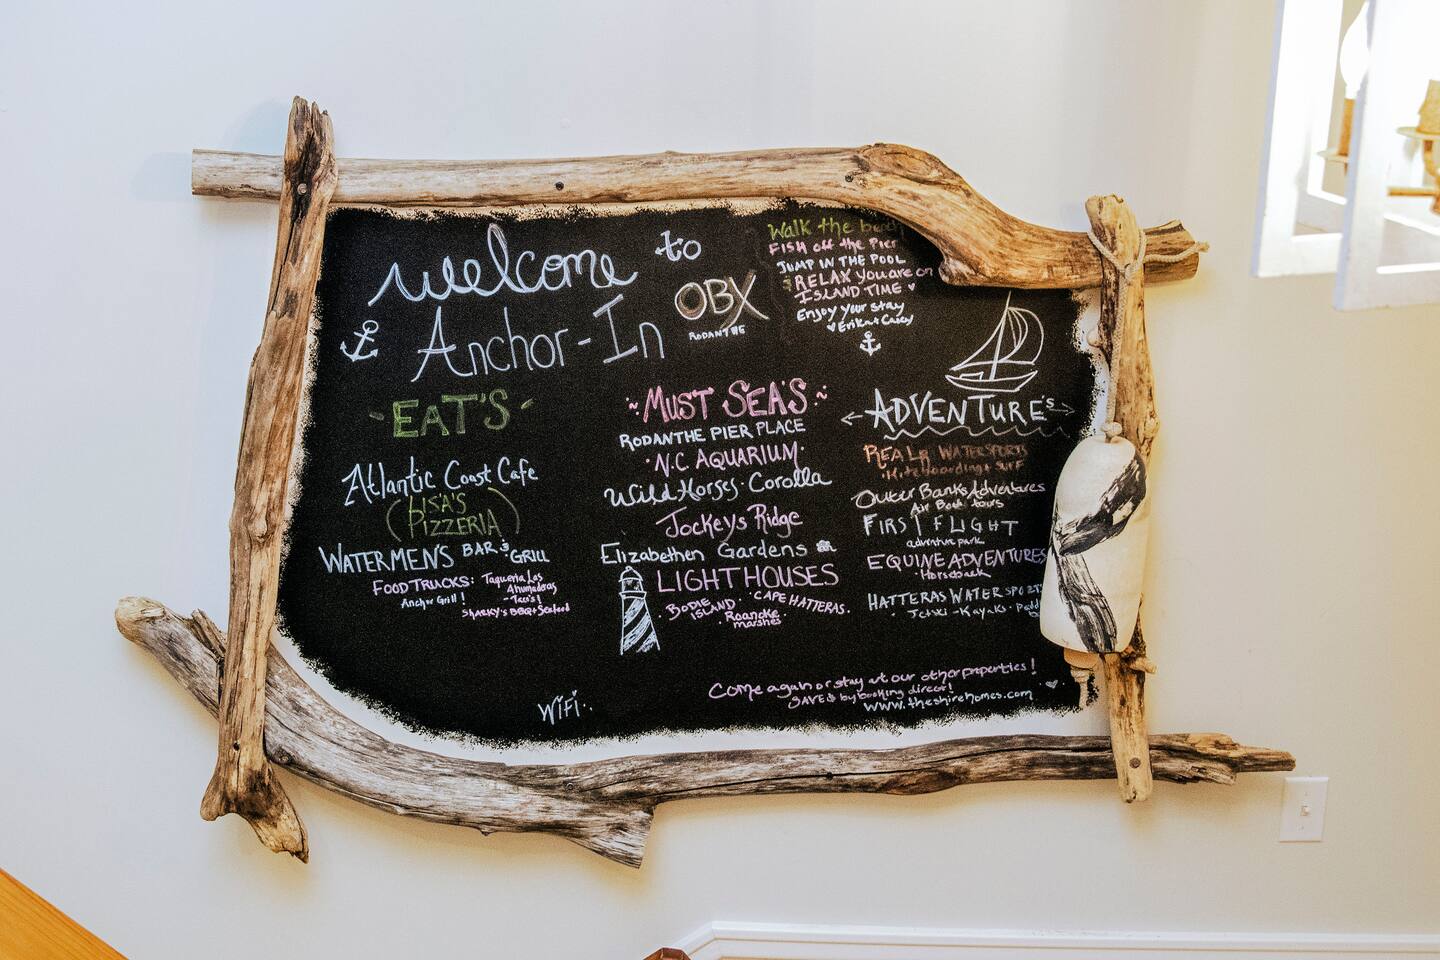 welcome to
Anchor-In
OBX
RODANTHE
Walk the beach
FISH off the Pier
JUMP IN THE POOL
RELAX you are on
ISLAND TIME
Enjoy your stay
Erika + Casey
-EAT'S-
Atlantic Coast Cafe
(LISA'S
PIZZERIA)
WATERMEN'S BAR & GRILL
FOOD TRUCKS: Taqueria Las
Ahumaderas
-Taco's!
Anchor Grill!
SHARKY'S BBQ + Seafood
~MUST SEA'S~
RODANTHE PIER PLACE
N.C AQUARIUM
Wild Horses-Corolla
Jockeys Ridge
Elizabethen Gardens
LIGHTHOUSES
BODIE
ISLAND
CAPE HATTERAS.
Roanoke
marshes
ADVENTURE'S
REAL WATERSPORTS
Kiteboarding + Surf
Outer Banks Adventures
Air Boat tours
FIRST FLIGHT
adventure park
EQUINE ADVENTURES
Horseback
HATTERAS WATERSPORTS
Jetski-Kayaks-
WiFi:
Come again or stay at our other properties!
SAVE $ by booking direct!
www.theshirehomes.com